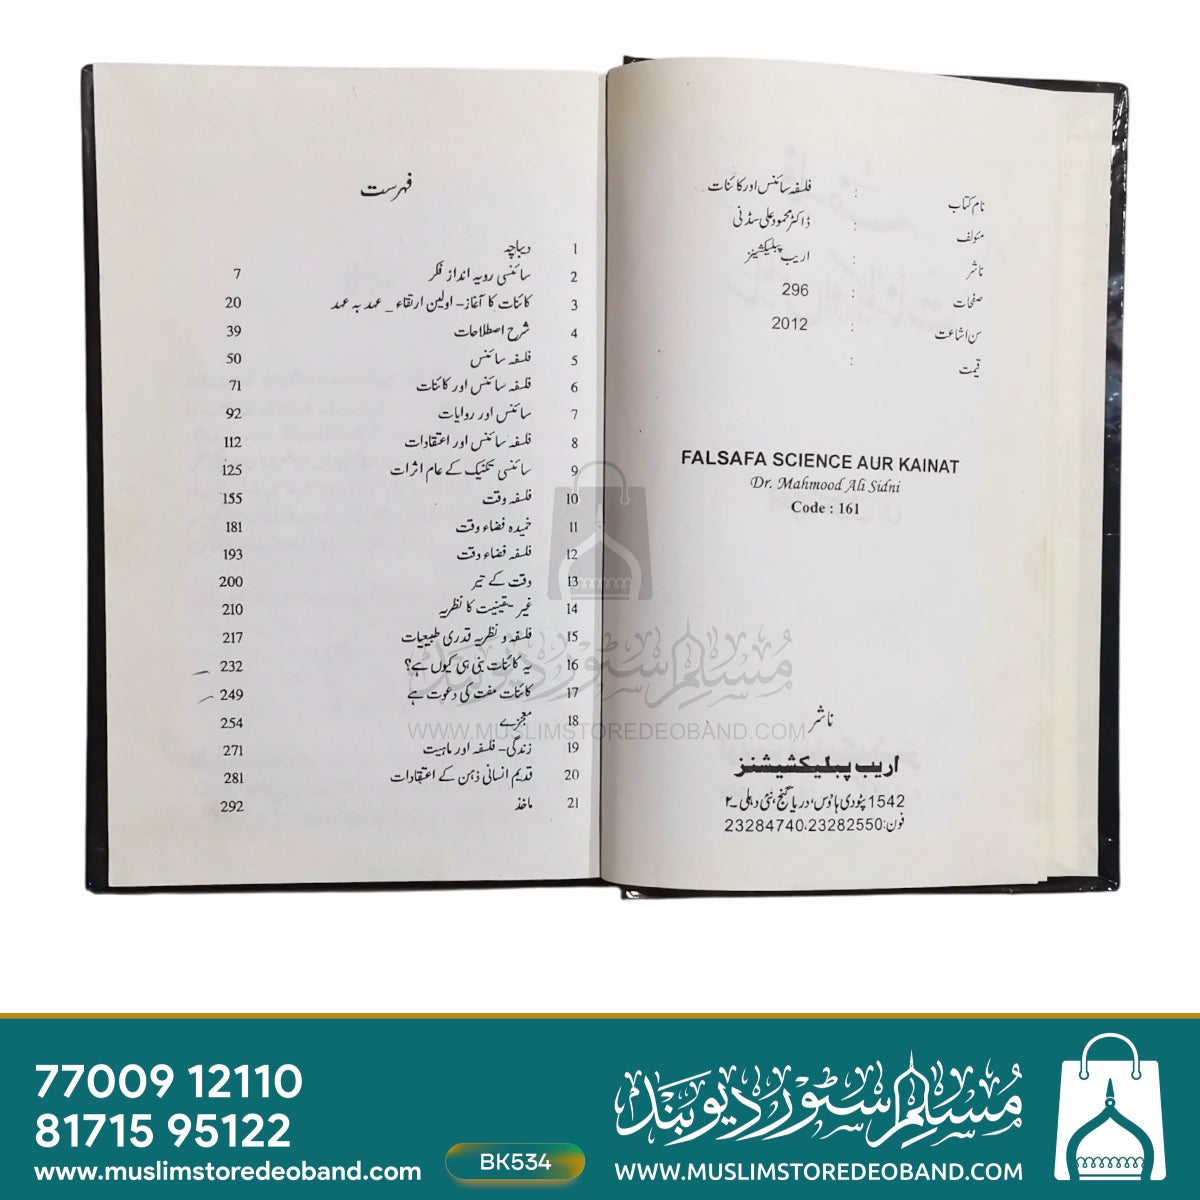 نام کتاب : فلسفہ سائنس اور کائنات
مئولف : ڈاکٹر محمود علی سڈنی
ناشر : اریب پبلیکشینز
صفحات : 296
سن اشاعت : 2012
قیمت :
FALSAFA SCIENCE AUR KAINAT
Dr. Mahmood Ali Sidni
Code : 161
ناشر
اریب پبلیکشینز
1542 پٹودی ہاؤس، دریا گنج، نئی دہلی ۔۲
فون: 23284740،23282550
فہرست
1 دیباچہ
2 سائنسی رویہ انداز فکر 7
3 کائنات کا آغاز - اولین ارتقاء _ عہد بہ عہد 20
4 شرح اصطلاحات 39
5 فلسفہ سائنس 50
6 فلسفہ سائنس اور کائنات 71
7 سائنس اور روایات 92
8 فلسفہ سائنس اور اعتقادات 112
9 سائنسی تکنیک کے عام اثرات 125
10 فلسفہ وقت 155
11 خمیدہ فضاء وقت 181
12 فلسفہ فضاء وقت 193
13 وقت کے تیر 200
14 غیر - یقینیت کا نظریہ 210
15 فلسفہ و نظریہ قدری طبیعیات 217
16 یہ کائنات بنی ہی کیوں ہے؟ 232
17 کائنات مفت کی دعوت ہے 249
18 معجزے 254
19 زندگی - فلسفہ اور ماہیت 271
20 قدیم انسانی ذہن کے اعتقادات 281
21 ماخذ 292
مسلم سٹور دیوبند
WWW.MUSLIMSTOREDEOBAND.COM
77009 12110
81715 95122
www.muslimstoredeoband.com
BK534
مسلم سٹور دیوبند
WWW.MUSLIMSTOREDEOBAND.COM